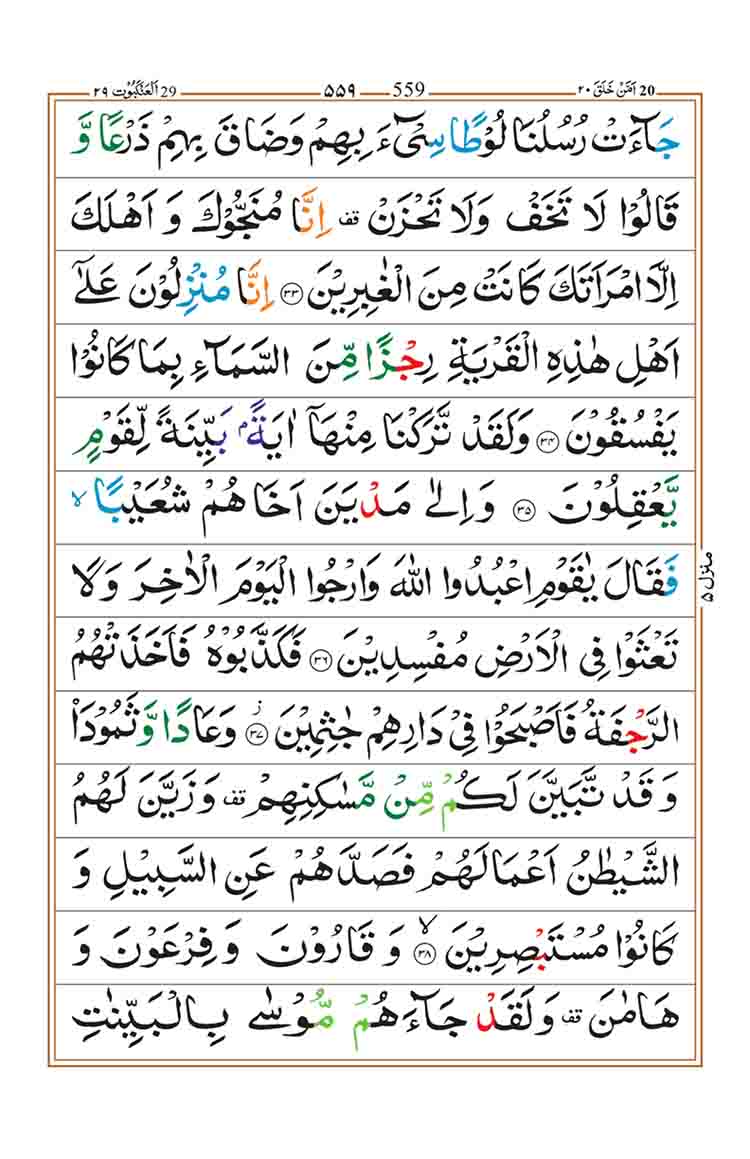 20 اَمَّنْ خَلَقَ ٢٠ 559 ٥٥٩ 29 اَلْعَنْكَبُوْت ٢٩
جَآءَتْ رُسُلُنَا لُوْطًا سِیْٓءَ بِهِمْ وَضَاقَ بِهِمْ ذَرْعًا وَّ
قَالُوْا لَا تَخَفْ وَلَا تَحْزَنْ قف اِنَّا مُنَجُّوْكَ وَ اَهْلَكَ
اِلَّا امْرَاَتَكَ كَانَتْ مِنَ الْغٰبِرِیْنَ ۝٣٣ اِنَّا مُنْزِلُوْنَ عَلٰۤی
اَهْلِ هٰذِهِ الْقَرْیَةِ رِجْزًا مِّنَ السَّمَآءِ بِمَا كَانُوْا
یَفْسُقُوْنَ ۝٣٤ وَلَقَدْ تَّرَكْنَا مِنْهَاۤ اٰیَةًۢ بَیِّنَةً لِّقَوْمٍ
یَّعْقِلُوْنَ ۝٣٥ وَاِلٰی مَدْیَنَ اَخَا هُمْ شُعَیْبًا ۙ
فَقَالَ یٰقَوْمِ اعْبُدُوا اللّٰهَ وَارْجُوا الْیَوْمَ الْاٰخِرَ وَلَا
تَعْثَوْا فِی الْاَرْضِ مُفْسِدِیْنَ ۝٣٦ فَكَذَّبُوْهُ فَاَخَذَتْهُمُ
الرَّجْفَةُ فَاَصْبَحُوْا فِیْ دَارِهِمْ جٰثِمِیْنَ ۝٣٧ ز وَعَادًا وَّ ثَمُوْدَا۟
وَ قَدْ تَّبَیَّنَ لَكُمْ مِّنْ مَّسٰكِنِهِمْ قف وَ زَیَّنَ لَهُمُ
الشَّیْطٰنُ اَعْمَالَهُمْ فَصَدَّهُمْ عَنِ السَّبِیْلِ وَ
كَانُوْا مُسْتَبْصِرِیْنَ ۝٣٨ ۙ وَ قَارُوْنَ وَ فِرْعَوْنَ وَ
هَامٰنَ قف وَلَقَدْ جَآءَهُمْ مُّوْسٰی بِالْبَیِّنٰتِ
منزل ٥